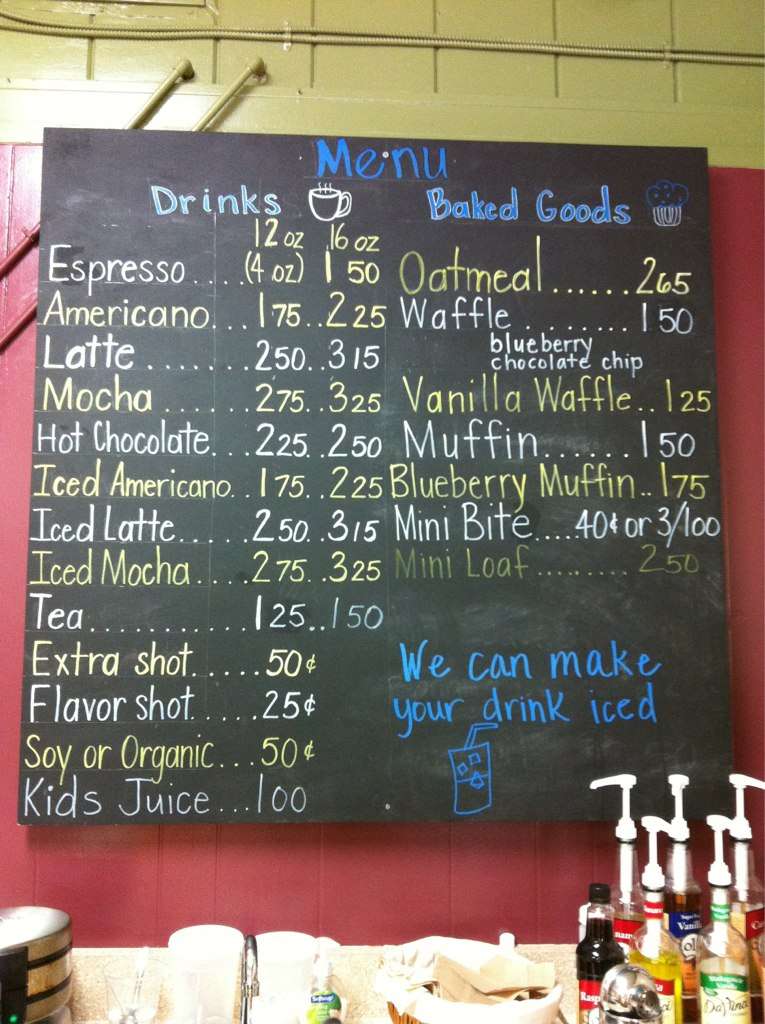 Menu
Drinks
12 oz 16 oz
Espresso....(4 oz) 1 50
Americano...1 75..2 25
Latte.......2 50..3 15
Mocha.......2 75..3 25
Hot Chocolate...2 25..2 50
Iced Americano..1 75..2 25
Iced Latte.....2 50..3 15
Iced Mocha....2 75..3 25
Tea...........1 25..1 50
Extra shot.....50¢
Flavor shot.....25¢
Soy or Organic...50¢
Kids Juice...1 00
Baked Goods
Oatmeal......2 65
Waffle........1 50
blueberry
chocolate chip
Vanilla Waffle..1 25
Muffin......1 50
Blueberry Muffin..1 75
Mini Bite....40¢ or 3/1 00
Mini Loaf.........2 50
We can make
your drink iced
Vanil
Rasp
DaVinci